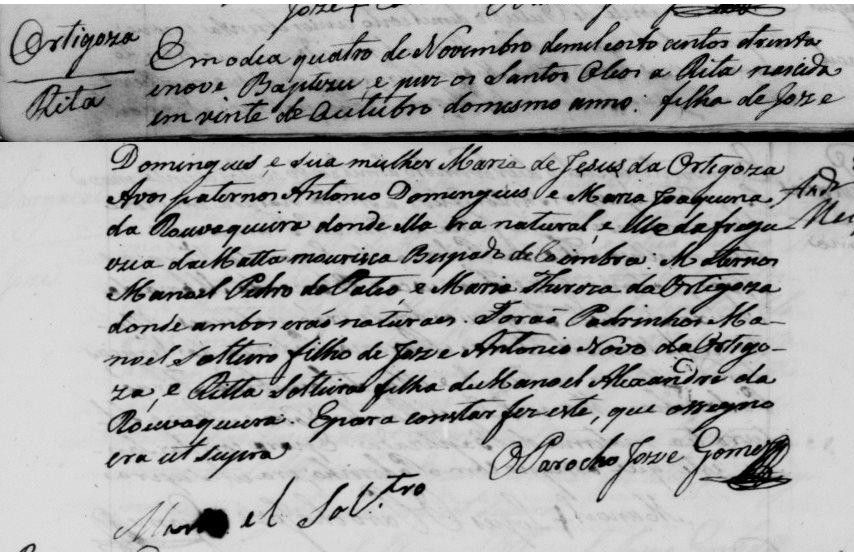 Ortigoza
Rita
Em o dia quatro de Novembro de mil oito centos trenta
e nove Baptizei, e puz os Santos Oleos a Rita nascida
em vinte de Outubro do mesmo anno: filha de Joze
Domingues, e sua mulher Maria de Jesus da Ortigoza
Avos paternos Antonio Domingues e Maria Joaquina
da Rouvaqueira donde ella era natural, e elle da fregue
zia da Matta mourisca Bispado de Coimbra: Maternos
Manoel Pedro do Pateo, e Maria Thereza da Ortigoza
donde ambos erão naturaes. Forão Padrinhos Ma-
noel Solteiro filho de Joze Antonio Novo da Ortigo-
za, e Ritta Solteira filha de Manoel Alexandre da
Rouvaqueira. E para constar fez este, que assegno
era ut supra
O Parocho Joze Gomes
Manoel Solt.tro